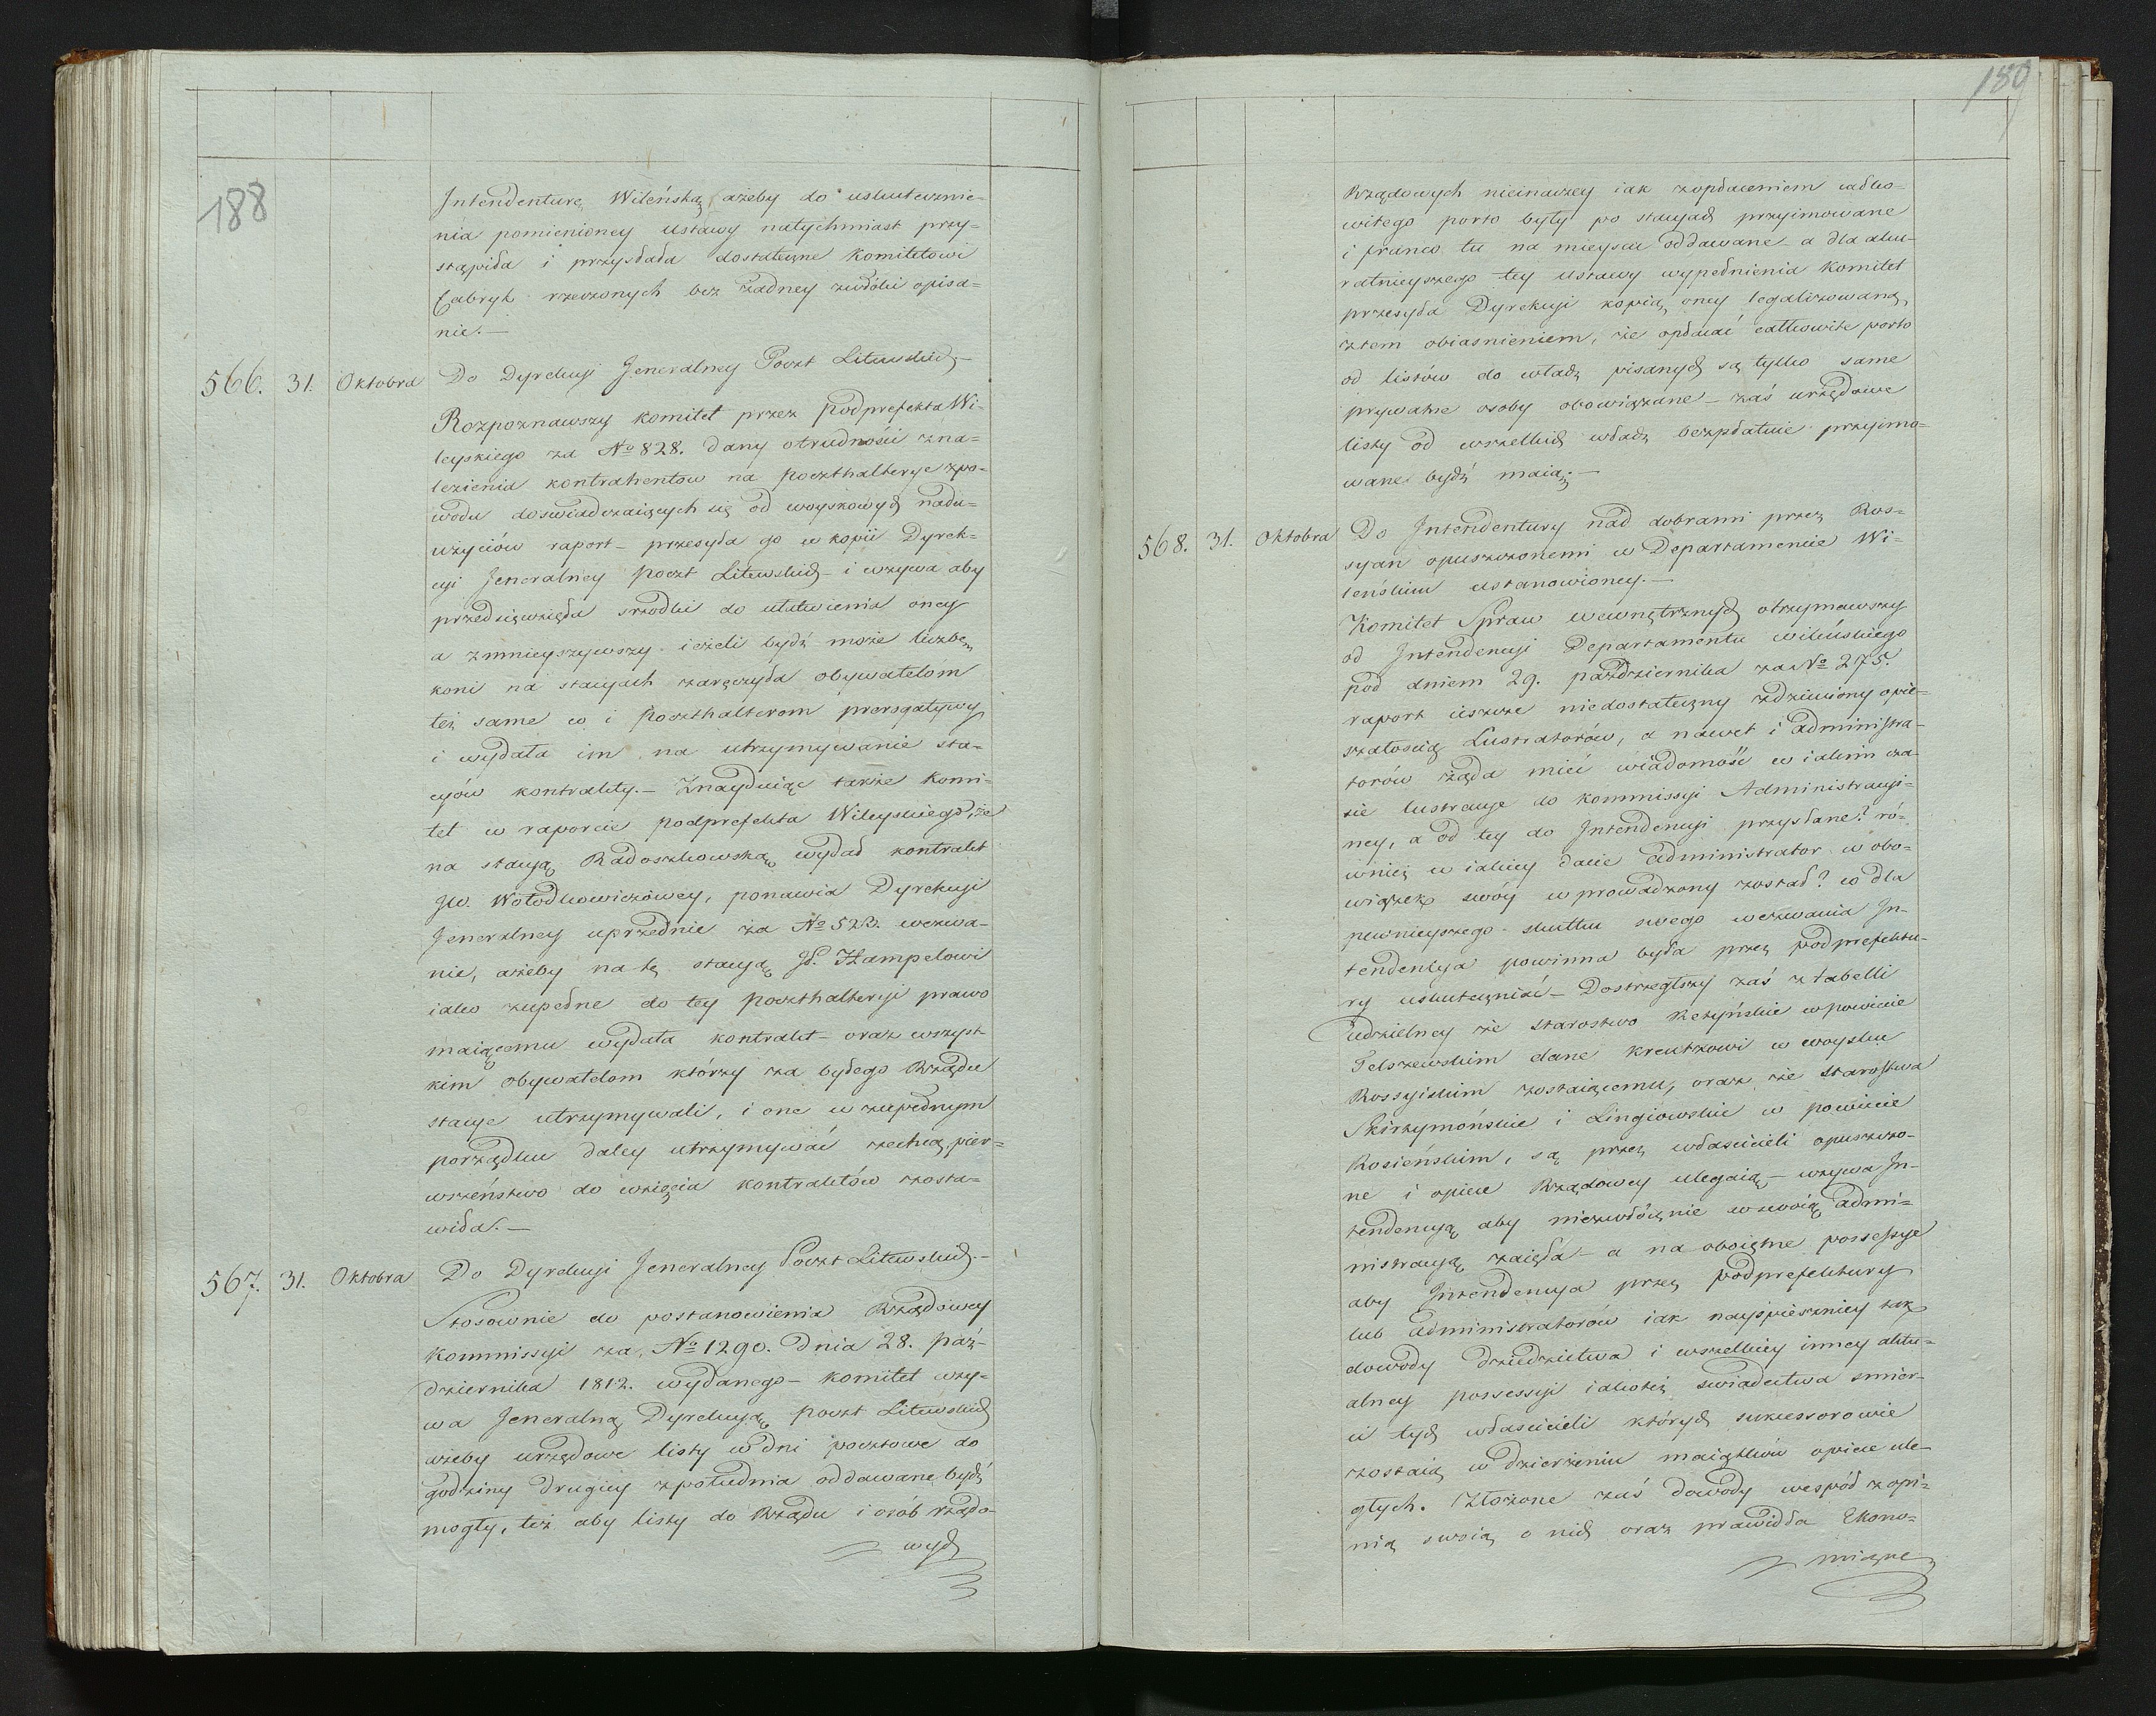 188
Intendenturę Wileńską ażeby do uskutecznie=
nia pomienioney ustawy natychmiast przy=
stąpiła i przysłała dostateczne Komitetowi
fabryk rzeczonych bez żadney zwłóki opisa=
nie.—
566. 31. Oktobra Do Dyrekcyi Jeneralney Poczt Litewskich.—
Rozpoznawszy komitet przez podprefekta Wi-
leyskiego za No 828. dany otrudności zna=
lezienia kontrahentow na poczthalterye zpo-
wodu doswiadczaiących się od woyskowych nadu=
użyciów raport — przesyła go w kopii Dyrek=
cyi Jeneralney poczt Litewskich — i wzywa aby
przedsięwzięła srzodki do ułatwienia oney
a zmnieyszywszy ieżeli bydź może liczbę
koni na stacyach zaręczyła obywatelom
też same co i poczthalterom prerogatywy
i wydała im na utrzymywanie sta=
cyów kontrakty.— Znayduiąc także komi=
tet w raporcie podprefekta Wileyskiego, że
na stacyą Radoszkowską wydał kontrakt
JW. Wołodkowiczówey, ponawia Dyrekcyi
Jeneralney uprzednie za No 523. wezwa=
nie, ażeby na tę stacyą Hampelowi
iako zupełne do tey poczthalteryi prawo
maiącemu wydała kontrakt — oraz wszyst-
kim obywatelom którzy za byłego Rządu
stacye utrzymywali, i one w zupełnym
porządku daley utrzymywać zechcą, pier=
wszeństwo do wzięcia kontraktów zosta=
wiła.—
567. 31. Oktobra Do Dyrekcyi Jeneralney Poczt Litewskich.—
Stosownie do postanowienia Rządowey
Kommissyi za No 1290. Dnia 28. paź-
dziernika 1812. wydanego — komitet wzy=
wa Jeneralną Dyrekcyą poczt Litewskich
ażeby urzędowe listy w dni pocztowe do
godziny drugiey zpołudnia oddawane bydź
mogły, też aby listy do Rządu i osób rządo-
wych
189
Rządowych nieinaczey iak zopłaceniem całko=
witego porto były po stacyach przyimowane
i franco tu na mieyscu oddawane — a dla aku-
ratnieyszego tey ustawy wypełnienia Komitet
przesyła Dyrekcyi kopią oney legalizowaną,
ztem obiasnieniem, że opłacać całkowite porto
od listów do władz pisanych są tylko same
prywatne osoby obowiązane — zaś urzędowe
listy od wszelkich władz bezpłatnie przyimo=
wane bydź maią.—
568. 31. Oktobra Do Intendentury nad dobrami przez Ros=
syan opuszczonemi w Departamencie Wi=
leńskim ustanowioney.—
Komitet Spraw wewnętrznych otrzymawszy
od Intendencyi Departamentu wileńskiego
pod dniem 29. pazdziernika za No 275.
raport ieszcze niedostateczny zdziwiony opie=
szałoscią Lustratorów, a nawet i administra-
torów żąda mieć wiadomość w iakim cza-
sie lustracye do kommissyi Administracyi=
ney, a od tey do Intendencyi przysłane? ró=
wnież w iakiey dacie administrator w obo=
wiązek swóy wprowadzony został? co dla
pewnieyszego skutku swego wezwania In-
tendencya powinna była przez podprefektu-
ry uskutecznić — Dostrzegłszy zaś z tabelli
udzielney że starostwo Retyńskie w powiecie
Telszewskim dane Kreutzowi w woysku
Rossyiskim zostaiącemu, oraz że starostwa
Skirzymońskie i Lingiowskie w powiecie
Rosieńskim, są przez właścicieli opuszczo-
ne i opiece Rządowey ulegaią — wzywa In-
tendencyą aby niezwłócznie w swoią admi=
nistracyą zaięła — a na oboiętne possessye
aby Intendencya przez podprefektury
lub administratorów iak nayspieszniey tak
dowody dziedzictwa i wszelkiey inney aktu=
alney possessyi iakoteż swiadectwa smier-
ci tych właścicieli których sukcessorowie
zostaią w dzierżeniu maiątków opiece ule-
głych. Złożone zaś dowody wespół z opi=
nią swoią o nich oraz prawidła Ekono=
miczne